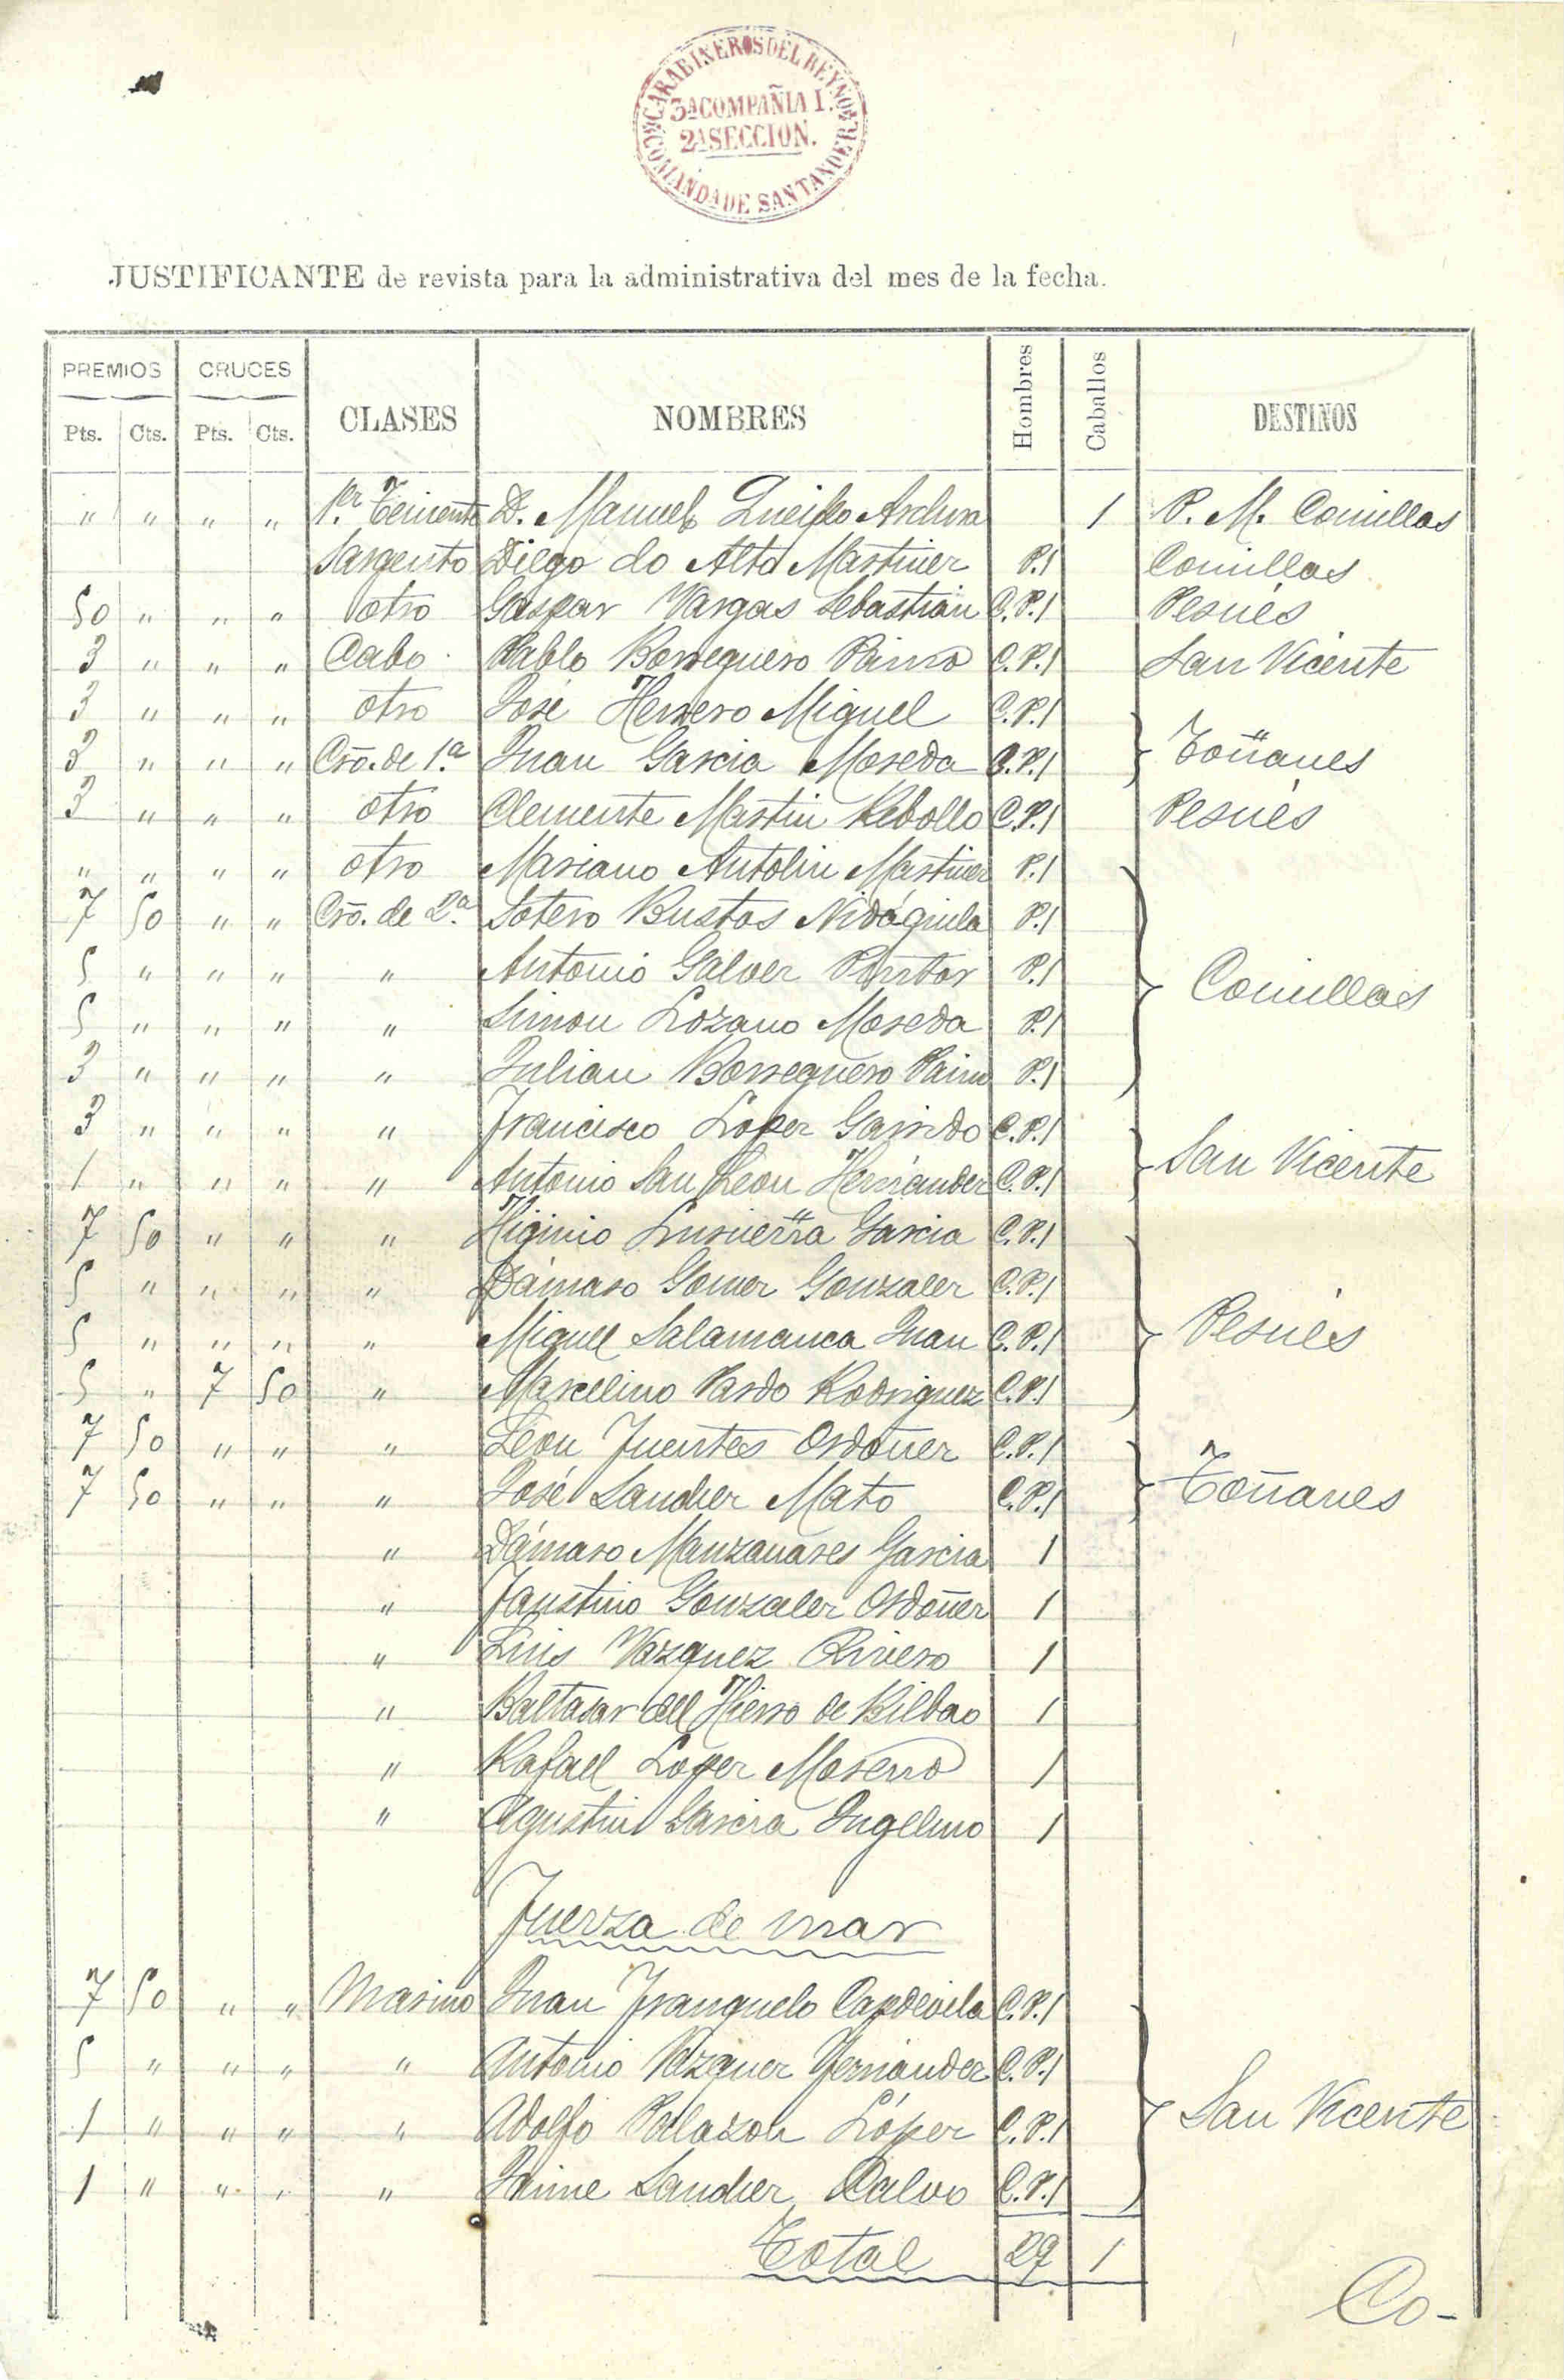 CARABINEROS DEL REYNO
COMANDA DE SANTANDER
3ª COMPAÑIA I.
2ª SECCION.
JUSTIFICANTE de revista para la administrativa del mes de la fecha.
PREMIOS CRUCES CLASES NOMBRES Hombres Caballos DESTINOS
Pts. Cts. Pts. Cts.
" " " " 1.er Teniente D. Manuel 1 P. M. Comillas
Sargento Diego do Alto Martinez P. 1 Comillas
50 " " " otro Gaspar Vargas Sebastián C. P. 1 Pesués
3 " " " Cabo Pablo Borreguero C. P. 1 San Vicente
3 " " " otro José Herrero Miguel C. P. 1
3 " " " Cro. de 1.ª Juan Garcia Moreda C. P. 1 Toñanes
3 " " " otro Clemente Martin Rebollo C. P. 1 Pesués
" " " " otro Mariano Antolin Martinez P. 1
7 50 " " Cro. de 2.ª Sotero Bustos Nidáguila P. 1
5 " " " " Antonio Galvez Pintor P. 1 Comillas
5 " " " " Simon Lozano Moreda P. 1
3 " " " " Julian Borreguero P. 1
3 " " " " Francisco Lopez Garrido C. P. 1
1 " " " " Antonio San Leon Hernandez C. P. 1 San Vicente
7 50 " " " Higinio Garcia C. P. 1
5 " " " " Dámaso Gomez Gonzalez C. P. 1
5 " " " " Miguel Salamanca Juan C. P. 1 Pesués
5 " 7 50 " Marcelino Pardo Rodriguez C. P. 1
7 50 " " " Leon Fuentes Ordoñez C. P. 1
7 50 " " " José Sanchez Mato C. P. 1 Toñanes
" Dámaso Manzanares Garcia 1
" Faustino Gonzalez Ordoñez 1
" Luis Vazquez Rivero 1
" Baltasar del Hierro de Bilbao 1
" Rafael Lopez Moreno 1
" Agustin Garcia 1
Fuerza de mar
7 50 " " Marino Juan Franquelo Capdevila C. P. 1
5 " " " " Antonio Vazquez Fernandez C. P. 1
1 " " " " Adolfo Palazon López C. P. 1 San Vicente
1 " " " " Jaime Sanchez Calvo C. P. 1
Total 29 1
Co-